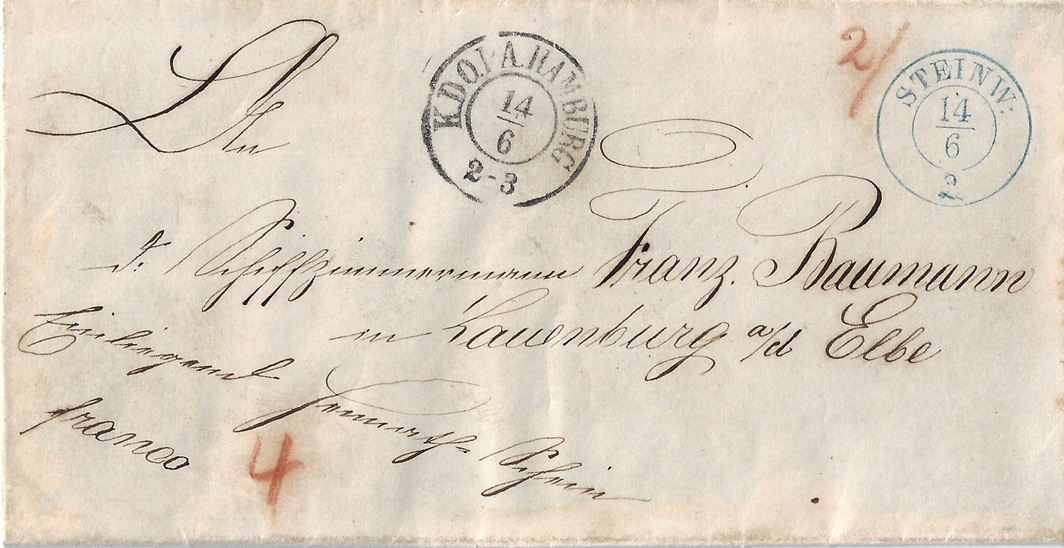 2/
K.D.O.P.A. HAMBURG
14
6
2-3
STEINW:
14
6
2
An
d: Schiffzimmermann Franz. Baumann
in Lauenburg a/d Elbe
Einliegend
Heimaths-Schein
franco
4